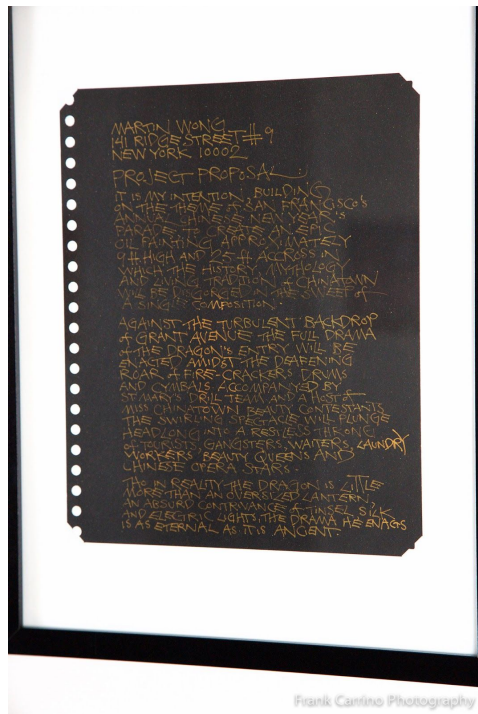 MARTIN WONG
141 RIDGE STREET #9
NEW YORK 10002
PROJECT PROPOSAL:
IT IS MY INTENTION, BUILDING
ON THE THEME OF SAN FRANCISCO'S
CHINESE NEW YEAR'S
PARADE TO CREATE AN EPIC
OIL PAINTING, APPROXIMATELY
9 ft HIGH AND 25 ft ACCROSS IN
WHICH THE HISTORY, MYTHOLOGY
AND LIVING TRADITION OF CHINATOWN
WILL BE
A SINGLE COMPOSITION.
AGAINST THE TURBULENT BACKDROP
of GRANT AVENUE THE FULL DRAMA
of THE DRAGON'S ENTRY WILL BE
ENACTED AMIDST THE DEAFENING
ROAR of FIRE-CRACKERS DRUMS
AND CYMBALS ACCOMPANYED BY
ST. MARY'S DRILL TEAM AND A HOST of
MISS CHINATOWN BEAUTY CONTESTANTS
THE SWIRLING SPECTACLE WILL PLUNGE
HEADLONG INTO A RESTLESS THRONG
of TOURISTS GANGSTERS, WAITERS, LAUNDRY
WORKERS, BEAUTY QUEENS AND
CHINESE OPERA STARS.
THO IN REALITY THE DRAGON IS LITTLE
MORE THAN AN OVERSIZED LANTERN,
AN ABSURD CONTRIVANCE of TINSEL SILK
AND ELECTRIC LIGHTS, THE DRAMA HE ENACTS
IS AS ETERNAL AS IT IS ANCIENT.
Frank Carrino Photography